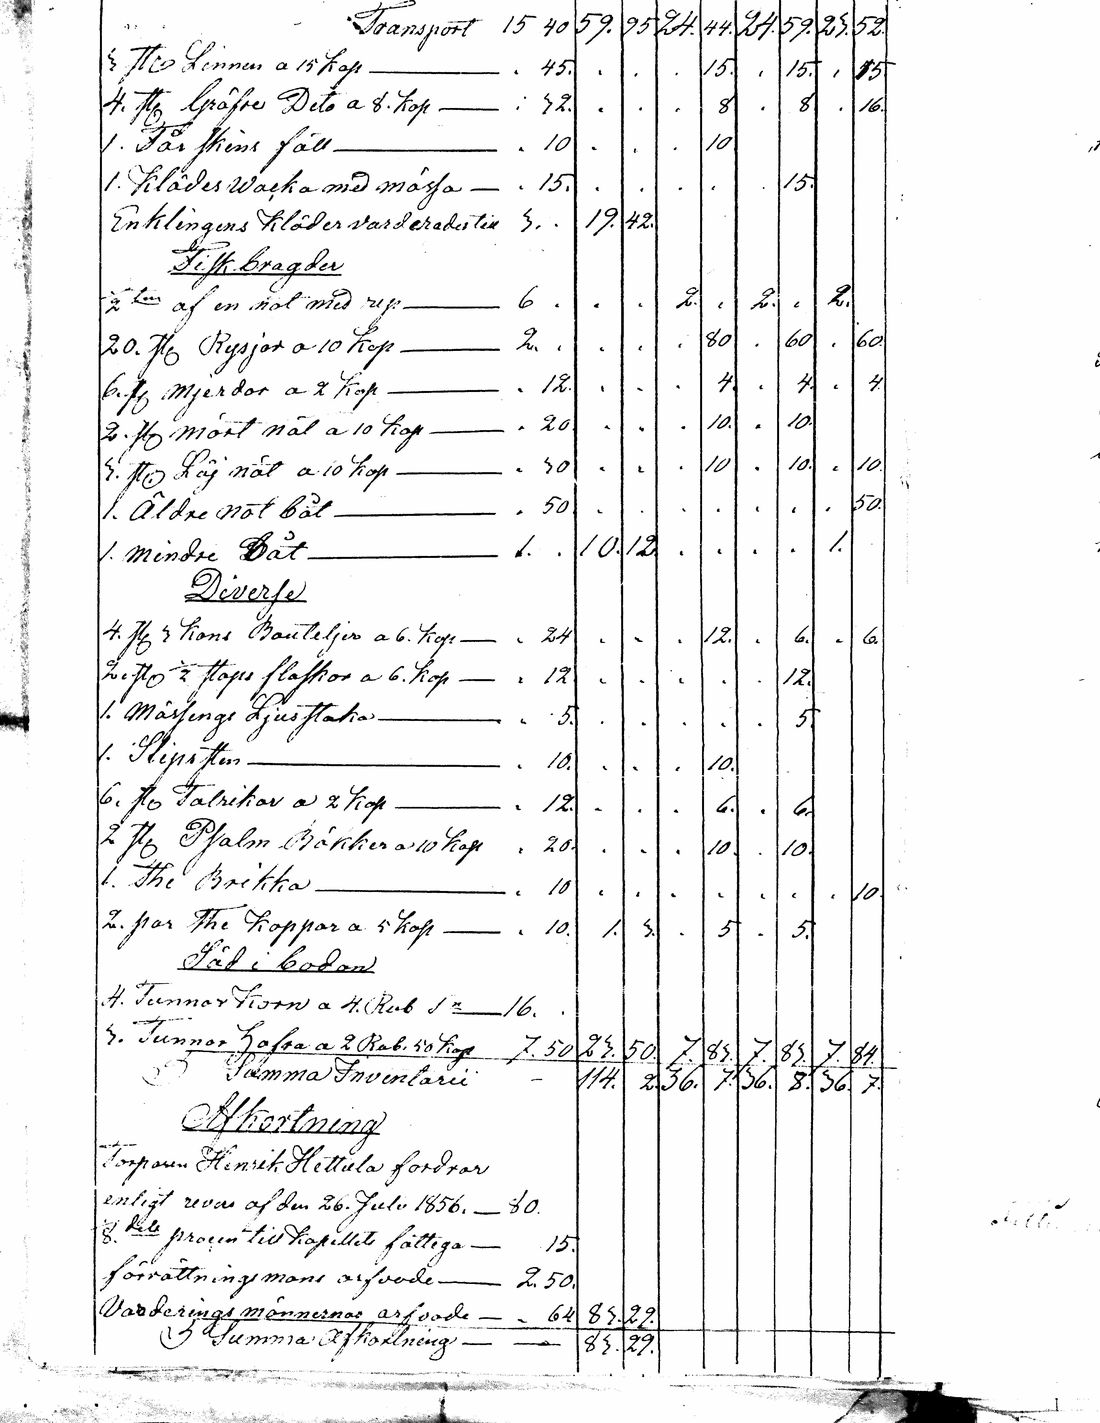 Transport 15 40 59. 95 24. 44. 24. 59. 23. 52.
3 st Linnen a 15 kop — . 45. . . . 15. . 15. . 15
4. st Gräfre Dito a 8. kop — . 32. . . . 8 . 8 . 16.
1. Får skins fäll — . 10 . . . 10
1. Klädes Wacka med mössa — . 15. . . . . . 15.
Enklingens Kläder varderades till 3. . 19. 42.
Fisk bragder
½ ten af en not med rep — 6 . . . 2. . 2. . 2.
20. st Rysjor a 10 Kop — 2. . . . . 80 . 60 . 60
6. st Mjerdor a 2 Kop — . 12. . . . 4. . 4. . 4
2. st Mört nät a 10 kop — . 20 . . . 10. . 10.
3. st Löj nät a 10 kop — . 30 . . . 10 . 10. . 10.
1. Äldre not båt — . 50 . . . . . . . 50.
1. mindre Båt — 1. . 10. 12 . . . . 1.
Diverse
4. st ½ kans Bouteljer a 6. kop — . 24 . . . 12. . 6. . 6.
2. st 2 stops flaskor a 6. kop — . 12 . . . . . 12.
1. Mässings Ljusstaka — . 5. . . . . . 5
1. Slipsten — . 10. . . . 10.
6. st Talrikar a 2 kop — . 12. . . . 6. . 6.
2 st Psalm Bökker a 10 kop . 20. . . . 10. . 10.
1. The Brikka — . 10 . . . . . . . 10.
2. par The Koppar a 5 kop — . 10. 1. 3. . 5 . 5.
Säd i bodan
4. Tunnor Korn a 4. Rub S — 16. .
3. Tunnor Hafra a 2 Rub. 50 kop 7. 50 23. 50. 7. 83. 7. 83. 7. 84.
Summa Inventarii - 114. 2. 36. 7. 36. 8. 36. 7.
Afkortning
Torparen Henrik Hettula fordrar
enligt revers af den 26. Julii 1856. — 80.
8. dels procent till Kapellets fattiga — 15.
förrättningsmans arfvode — 2. 50.
Varderingsmännernas arfvode — . 64 83. 29.
Summa Afkortning — — 83. 29.